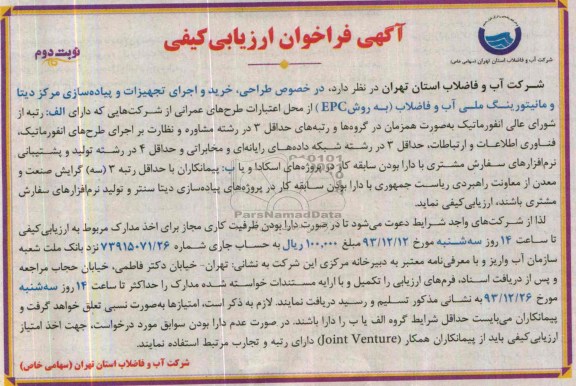 آگهی فراخوان ارزیابی کیفی
نوبت دوم
شرکت آب و فاضلاب استان تهران (سهامی خاص)
شرکت آب و فاضلاب استان تهران در نظر دارد، در خصوص طراحی، خرید و اجرای تجهیزات و پیاده‌سازی مرکز دیتا
و مانیتورینگ ملی آب و فاضلاب (به روش EPC) از محل اعتبارات طرح‌های عمرانی از شرکت‌هایی که دارای الف: رتبه از
شورای عالی انفورماتیک به‌صورت همزمان در گروه‌ها و رتبه‌های حداقل ۳ در رشته مشاوره و نظارت بر اجرای طرح‌های انفورماتیک،
فناوری اطلاعات و ارتباطات، حداقل ۳ در رشته شبکه داده‌های رایانه‌ای و مخابراتی و حداقل ۴ در رشته تولید و پشتیبانی
نرم‌افزارهای سفارش مشتری با دارا بودن سابقه کار در پروژه‌های اسکادا و یا ب: پیمانکاران با حداقل رتبه ۳ (سه) گرایش صنعت و
معدن از معاونت راهبردی ریاست جمهوری با دارا بودن سابقه کار در پروژه‌های پیاده‌سازی دیتا سنتر و تولید نرم‌افزارهای سفارش
مشتری باشند، ارزیابی کیفی نماید.
لذا از شرکت‌های واجد شرایط دعوت می‌شود تا در صورت دارا بودن ظرفیت کاری مجاز برای اخذ مدارک مربوط به ارزیابی کیفی
تا ساعت ۱۴ روز سه‌شنبه مورخ ۹۳/۱۲/۱۲ مبلغ ۱۰۰,۰۰۰ ریال به حساب جاری شماره ۷۳۹۱۵۰۷۱/۲۶ نزد بانک ملت شعبه
سازمان آب واریز و با معرفی‌نامه معتبر به دبیرخانه مرکزی این شرکت به نشانی: تهران- خیابان دکتر فاطمی، خیابان حجاب مراجعه
و پس از دریافت اسناد، فرم‌های ارزیابی را تکمیل و با ارایه مستندات خواسته شده مدارک را حداکثر تا ساعت ۱۴ روز سه‌شنبه
مورخ ۹۳/۱۲/۲۶ به نشانی مذکور تسلیم و رسید دریافت نمایند. لازم به ذکر است، امتیازها به‌صورت نسبی تعلق خواهد گرفت و
پیمانکاران می‌بایست حداقل شرایط گروه الف یا ب را دارا باشند. در صورت عدم دارا بودن سوابق مورد درخواست، جهت اخذ امتیاز
ارزیابی کیفی باید از پیمانکاران همکار (Joint Venture) دارای رتبه و تجارب مرتبط استفاده نمایند.
شرکت آب و فاضلاب استان تهران (سهامی خاص)
ParsNamadData